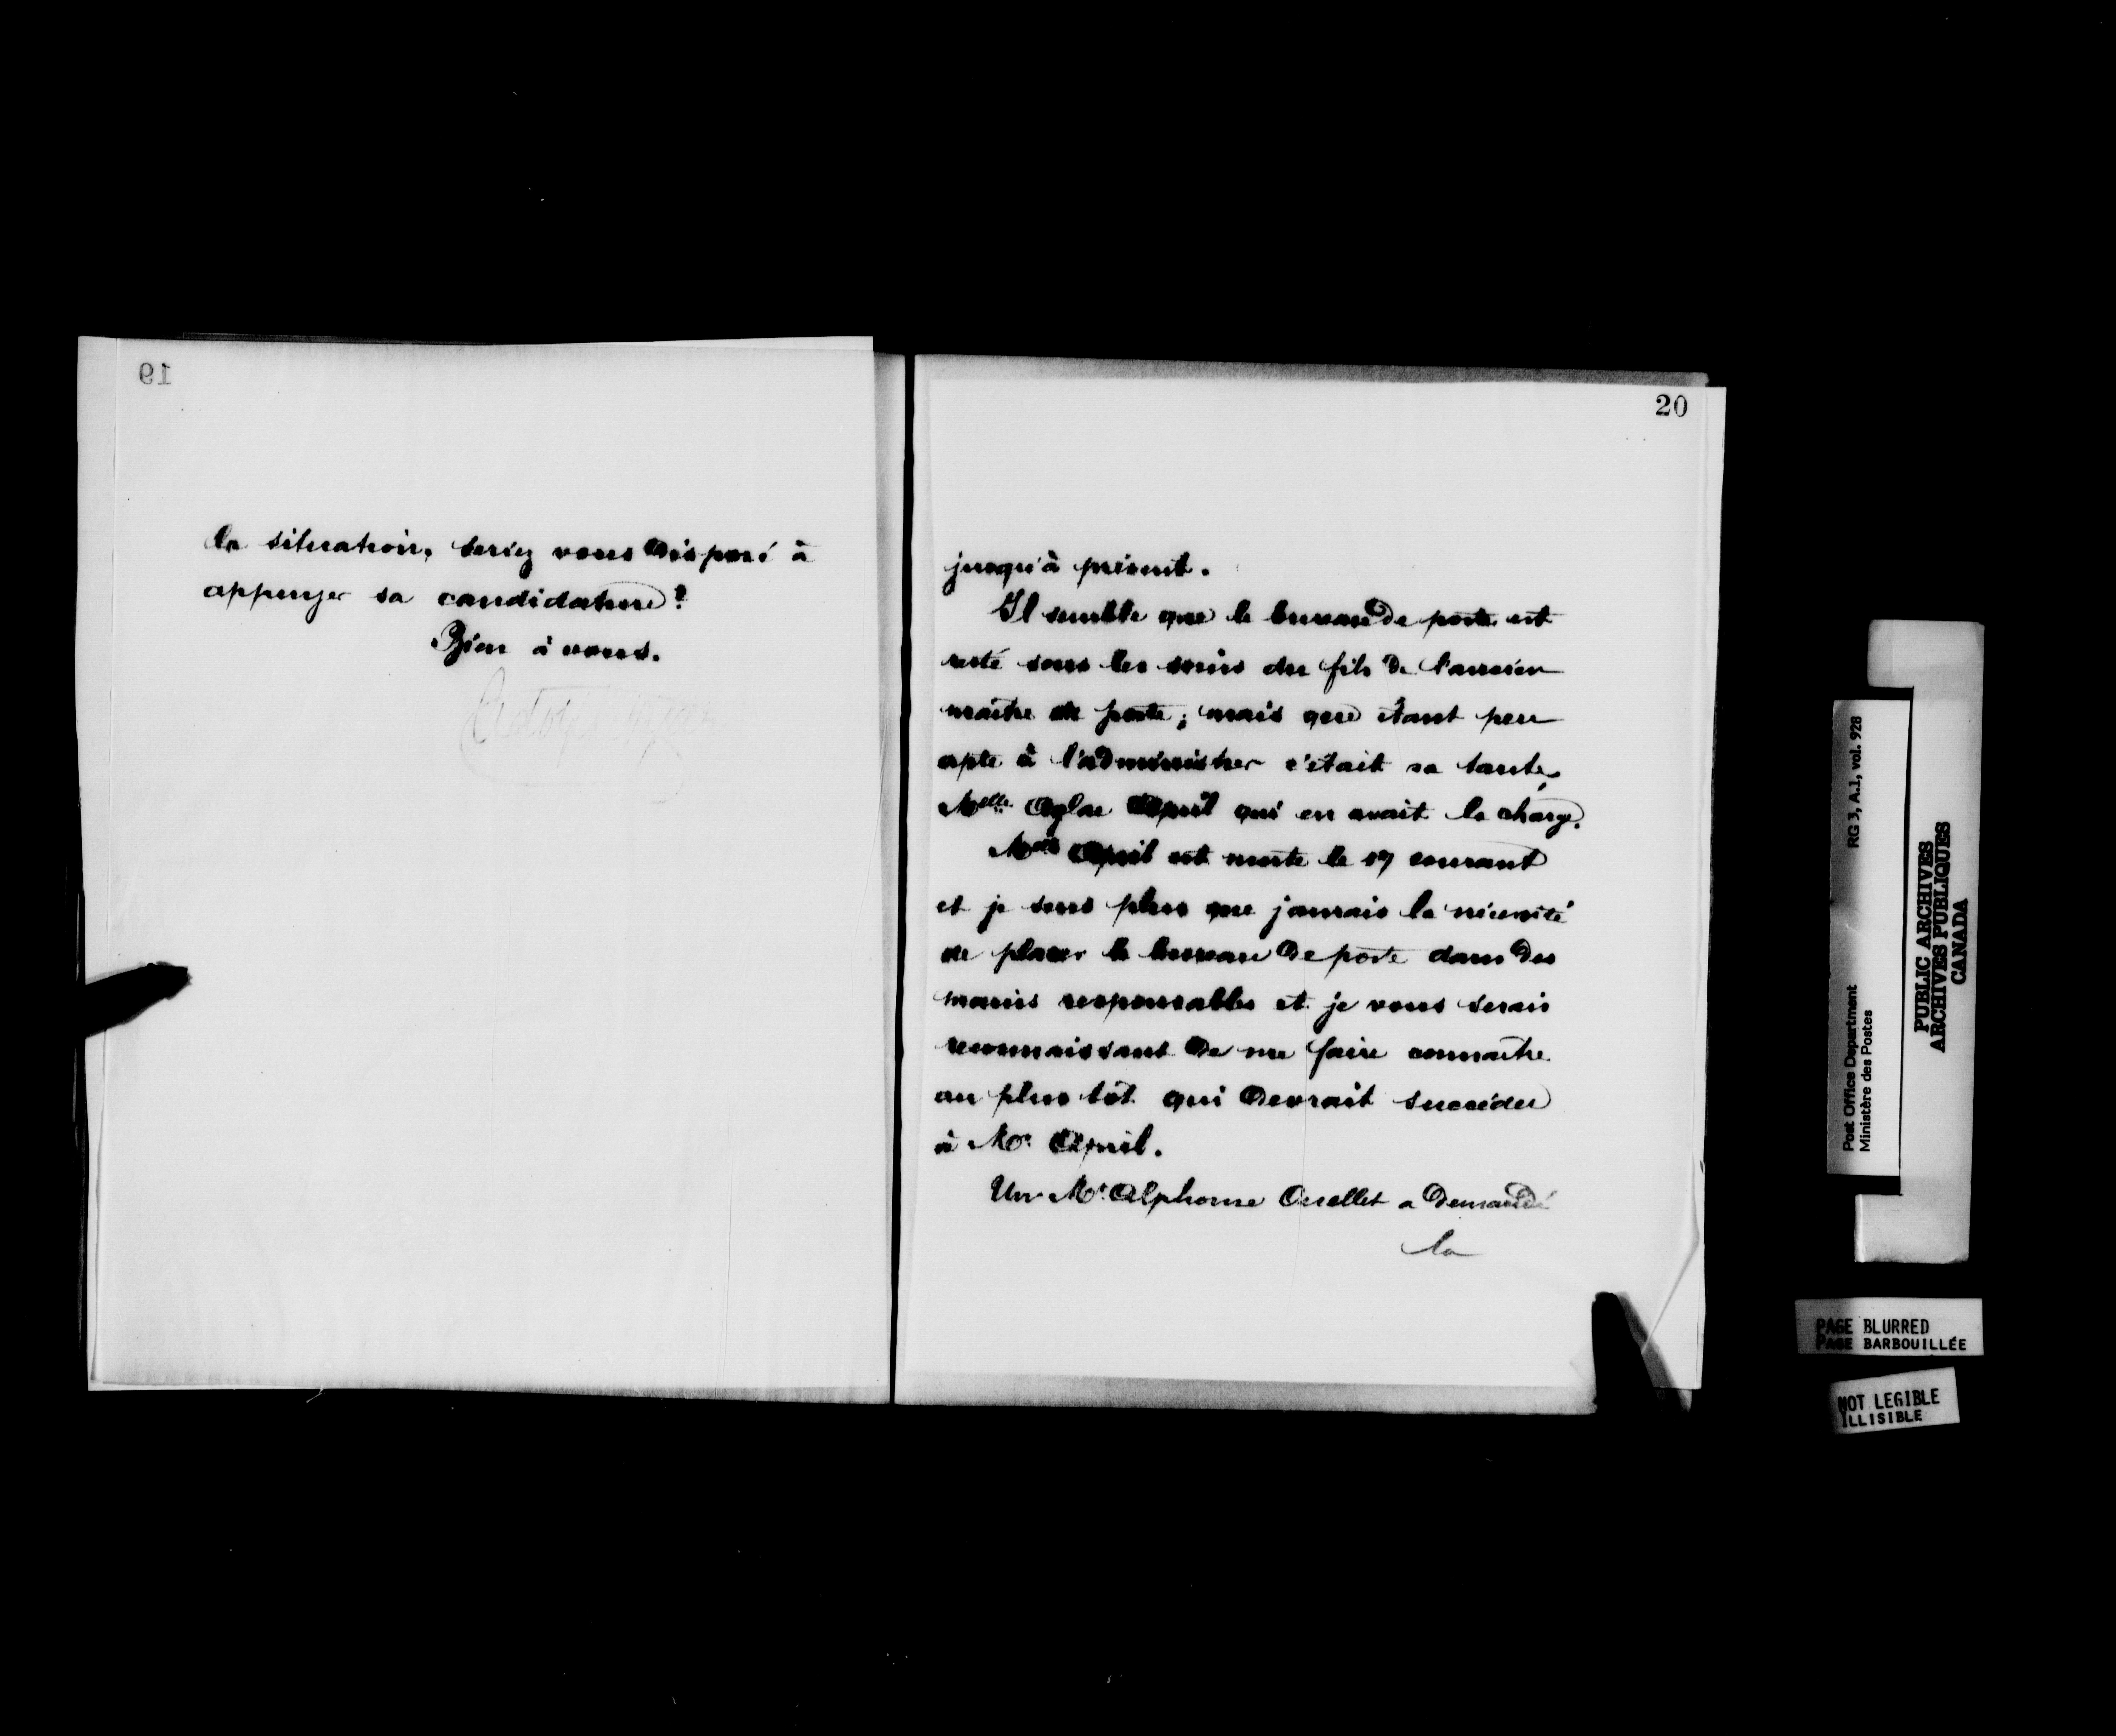 19
la situation, seriez vous disposé à
appuyer sa candidature?
Bien à vous.
20
jusqu'à présent.
Il semble que le bureau de poste est
resté sous les soins du fils de l'ancien
maître de poste; mais que étant peu
apte à l'administrer c'était sa tante,
Melle Aglae April qui en avait la charge.
Melle April est morte le 17 courant
et je sens plus que jamais la nécessité
de placer le bureau de poste dans des
mains responsables et je vous serais
reconnaissant de me faire connaître
au plus tôt qui devrait succéder
à Mr April.
Un Mr Alphonse Ouellet a demandé
la
Post Office Department RG 3, A.1, vol. 928
Ministère des Postes
PUBLIC ARCHIVES
ARCHIVES PUBLIQUES
CANADA
PAGE BLURRED
PAGE BARBOUILLÉE
NOT LEGIBLE
ILLISIBLE